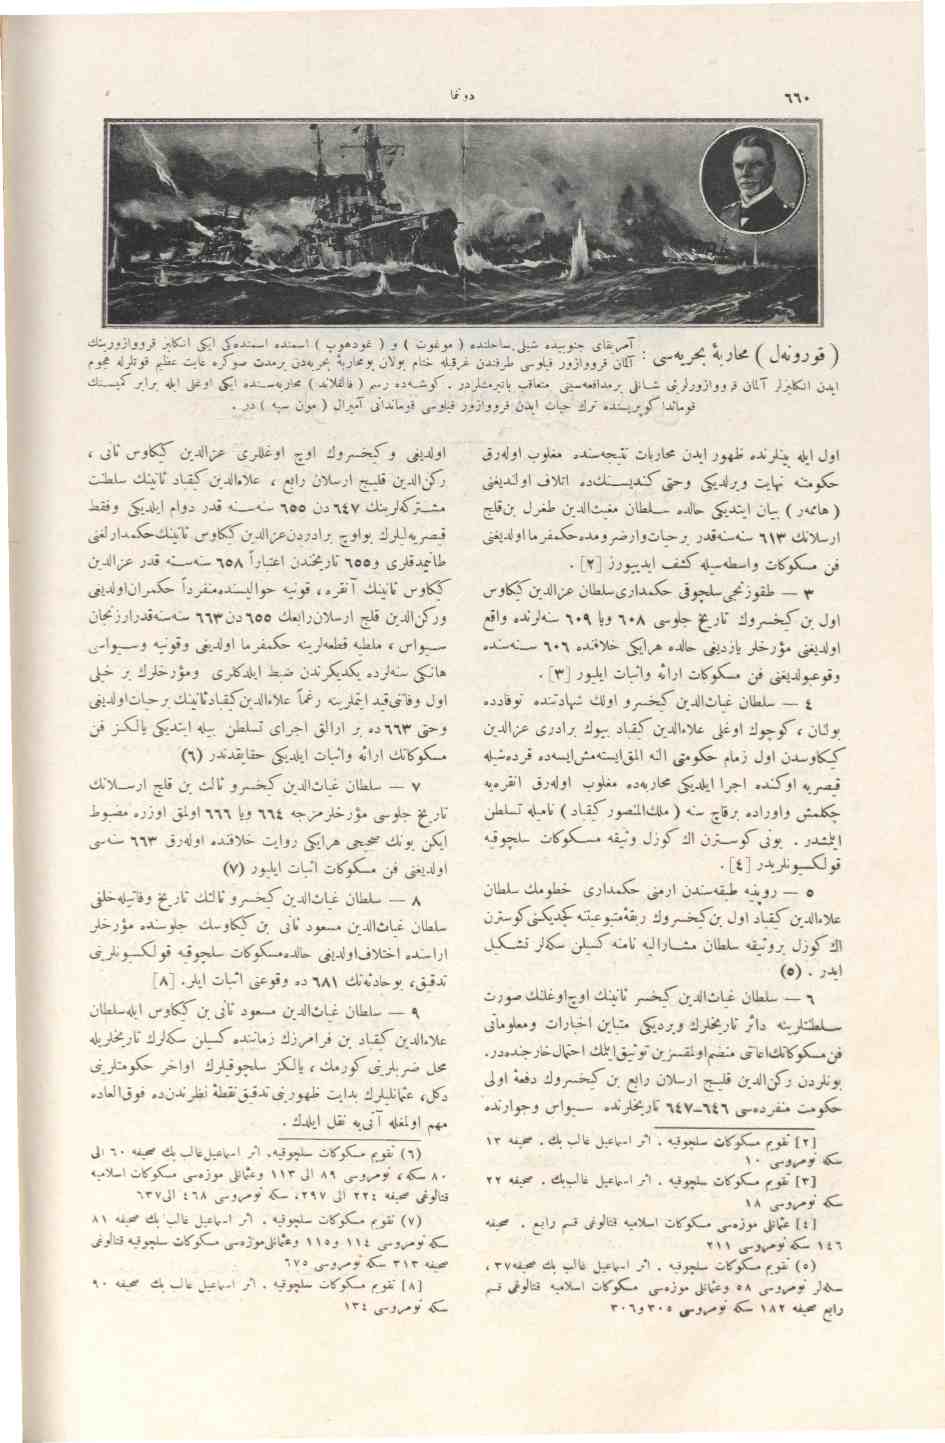 ٦٦٠
دونما
( قورونه‌ل ) محاربهٔ بحریه‌سی :
آمریقای جنوبیده شیلی ساحلنده ( مونموت ) و ( غودهوپ ) اسمنده اسمنده‌کی ایکی انکلیز قرووازورینك
آلمان قرووازور فیلوسی طرفندن غرقیله ختام بولان بو محاربهٔ بحریه‌دن برمدت صوكره غایت عظیم قوتلرله هجوم
ایدن انكلیزلر آلمان قرووازورلرنی شانلی برمدافعه‌سینی متعاقب باتیرمشلردر . كوشه‌ده رسم ( فالقلاند ) محاربه‌سنده ایكی اوغلی ایله برابر كیسنك
قوماندا كوپریسنده ترك حیات ایدن قرووازور فیلوسی قوماندانی آمیرال ( فون سپه ) در .
اول ایله بینلرنده ظهور ایدن محاربات نتیجه‌سنده مغلوب اوله‌رق
حكومتنه نهایت ویرلدیكی وحتی كندیسنك‌ده اتلاف اولندیغنی
( هامه‌ر ) بیان ایتدیكی حالده سلطان مغیث‌الدین طغرل بن‌قلج
ارسلانك ٦١٣ سنه‌سنه‌قدر برحیات‌وارضرومده‌حكمفرما اولدیغنی
فن مسكوكات واسطه‌سیله كشف ایدییورز [٢] .
٣ — طقوزنجی‌سلچوقی حكمداری‌سلطان عزالدین كیكاوس
اول بن كیخسروك تاریخ جلوسی ٦٠٨ ویا ٦٠٩ سنه‌لرنده واقع
اولدیغنی مؤرخلر یازدیغی حالده هرایكی خلافنده ٦٠٦ سنه‌سنده
وقوعبولدیغنی فن مسكوكات ارائه واثبات ایلیور [٣] .
٤ — سلطان غیاث‌الدین كیخسرو اولك شهادتنده توقادده
بولنان ، كوچوك اوغلی علاءالدین كیقباد بیوك برادری عزالدین
كیكاوسدن اول زمام حكومتی النه المق‌ایسته‌مش‌ایسه‌ده قرده‌شیله
قیصریه اوكنده اجرا ایلدیكی محاربه‌ده مغلوب اوله‌رق انقره‌یه
چكلمش واوراده برقاچ سنه ( ملك‌المنصور كیقباد ) نامیله تسلطن
ایتمشدر . بونی كوسترن اك كوزل وثیقه مسكوكات سلچوقیه
قولكسیونلریدر [٤] .
٥ — روپنیه طبقه‌سندن ارمنی حكمداری خطومك سلطان
علاءالدین كیقباد اول بن‌كیخسروك ربقهٔ متبوعیتنه كچدیكنی‌كوسترن
اك كوزل بروثیقه سلطان مشارالیه نامنه كسیلن سكه‌لر تشكیل
ایدر . (٥)
٦ — سلطان غیاث‌الدین كیخسر ثانینك اوچ‌اوغلنك صورت
سلطنتلرینه دائر تاریخلرك ویردیكی متباین اخبارات ومعلوماتی
فن‌مسكوكاتك‌اعانتی منضم‌اولمقسزین توثیق‌ایتمك احتمال خارجنده‌در.
بونلردن ركن‌الدین قلیج ارسلان رابع بن كیخسروك دفعهٔ اولی
حكومت منفرده‌سی ٦٤٦-٦٤٧ تاریخلرنده سیواس وجوارنده
[٢] تقویم مسكوكات سلچوقیه . اثر اسماعیل غالب بك . صحیفه ١٣
سكه نومروسی ١٠
[٣] تقویم مسكوكات سلچوقیه . اثر اسماعیل غالب‌بك . صحیفه ٢٢
سكه نومروسی ١٨
[٤] عثمانلی موزه‌سی مسكوكات اسلامیه قتالوغی قسم رابع . صحیفه
١٤٦ سكه نومروسی ٢١١
(٥) تقویم مسكوكات سلچوقیه . اثر اسماعیل غالب بك صحیفه ٣٧،
سكه‌لر نومروسی ٥٨ وعثمانلی موزه‌سی مسكوكات اسلامیه قتالوغی قسم
رابع صحیفه ١٨٢ سكه نومروسی ٣٠٥ و٣٠٦
اولدیغی و كیخسروك اوچ اوغللری عزالدین كیكاوس ثانی ،
ركن‌الدین قلیج ارسلان رابع ، علاءالدین كیقباد ثانینك سلطنت
مشتركه‌لرینك ٦٤٧ دن ٦٥٥ سنه‌سنه قدر دوام ایلدیكی وفقط
قیصریه‌لیلرك بواوچ برادردن‌عزالدین كیكاوس ثانینك‌حكمدارلغنی
طانیمدقلری و٦٥٥ تاریخندن اعتباراً ٦٥٨ سنه‌سنه قدر عزالدین
كیكاوس ثانینك آنقره ، قونیه حوالیسنده‌منفرداً حكمران‌اولدیغی
وركن‌الدین قلج ارسلان‌رابعك ٦٥٥ دن ٦٦٣ سنه‌سنه‌قدرارزنجان
سیواس ، ملطیه قطعه‌لرینه حكمفرما اولدیغی وقونیه وسیواسی
هانكی سنه‌لرده یكدیكرندن ضبط ایلدكلری ومؤرخلرك بر خیلی
اول وفاتنی‌قید ایتملرینه رغماً علاءالدین‌كیقبادثانینك‌برحیات‌اولدیغی
وحتی ٦٦٣ ده بر ارالق اجرای تسلطن بیله ایتدیكی یالكز فن
مسكوكاتك ارائه واثبات ایلدیكی حقایقدندر (٦)
٧ — سلطان غیاث‌الدین كیخسرو ثالث بن قلج ارسلانك
تاریخ جلوسی مؤرخلرمزجه ٦٦٤ ویا ٦٦٦ اولمق اوزره مضبوط
ایكن بونك صحیحی هرایكی روایت خلافنده اوله‌رق ٦٦٣ سنه‌سی
اولدیغنی فن مسكوكات اثبات ایلیور (٧)
٨ — سلطان غیاث‌الدین كیخسرو ثالثك تاریخ وفاتیله‌خلفی
سلطان غیاث‌الدین مسعود ثانی بن كیكاوسك جلوسنده مؤرخلر
اراسنده اختلاف‌اولدیغی حالده‌مسكوكات سلچوقیه قولكسیونلرینی
تدقیق، بوحادثه‌نك ٦٨١ ده وقوعنی اثبات ایلر. [٨]
٩ — سلطان غیاث‌الدین مسعود ثانی بن كیكاوس ایله‌سلطان
علاءالدین كیقباد بن فرامرزك زماننده كسیلن سكه‌لرك تاریخلریله
محل ضربلرینی كورمك ، یالكز سلچوقیلرك اواخر حكومتلرینی
دكل، عثمانلیلرك بدایت ظهورینی‌تدقیق‌نقطهٔ نظرندن‌ده فوق‌العاده
مهم اولمغله آتی‌یه نقل ایلدك .
(٦) تقویم مسكوكات سلچوقیه. اثر اسماعیل‌غالب بك صحیفه ٦٠ الی
٨٠ سكه ، نومروسی ٨٩ الی ١١٣ وعثمانلی موزه‌سی مسكوكات اسلامیه
قتالوغی صحیفه ٢٢٤ الی ٢٩٧، سكه نومروسی ٤٦٨ الی٦٣٧
(٧) تقویم مسكوكات سلچوقیه . اثر اسماعیل غالب بك صحیفه ٨١
سكه نومروسی ١١٤ و١١٥ وعثمانلی‌موزه‌سی مسكوكات سلچوقیه قتالوغی
صحیفه ٣١٣ سكه نومروسی ٦٧٥
[٨] تقویم مسكوكات سلچوقیه . اثر اسماعیل غالب بك صحیفه ٩٠
سكه نومروسی ١٣٤